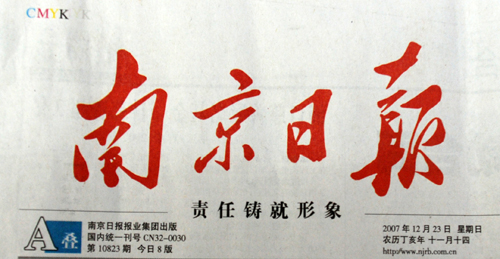 CMYK
南京日报
责任铸就形象
A叠
南京日报报业集团出版
国内统一刊号 CN32-0030
第 10823 期 今日 8 版
2007 年 12 月 23 日 星期日
农历丁亥年 十一月十四
http://www.njrb.com.cn